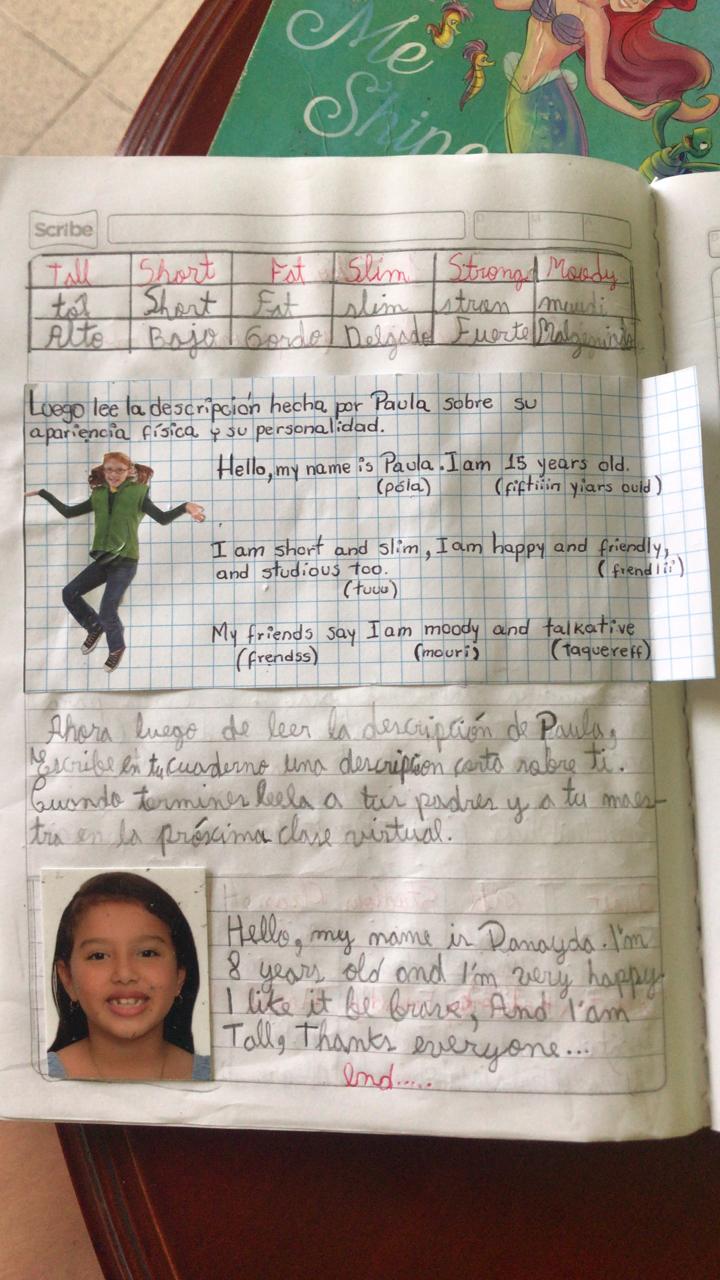 Me
Shine
Scribe
Tall Short Fat Slim Strong Moody
tol Short Fat slim stron muudi
Alto Bajo Gordo Delgado Fuerte
Luego lee la descripción hecha por Paula sobre su
apariencia física y su personalidad.
Hello, my name is Paula. I am 15 years old.
(póla) (fiftiiin yiars ould)
I am short and slim, I am happy and friendly,
and studious too. (frendlii)
(tuuu)
My friends say I am moody and talkative
(frendss) (mouri) (taquereff)
Ahora luego de leer la descripción de Paula,
Escribe en tu cuaderno una descripción corta sobre ti.
Cuando termines leela a tus padres y a tu maes-
tra en la próxima clase virtual.
Hello, my name is Danayda. I'm
8 years old and I'm very happy.
I like it be brave, And I'am
Tall, Thanks everyone...
End.....